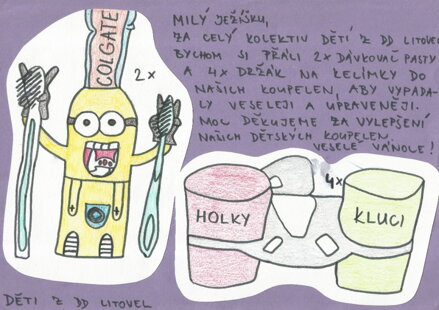 MILÝ JEŽÍŠKU,
ZA CELÝ KOLEKTIV DĚTÍ Z DD LITOVEL
BYCHOM SI PŘÁLI 2x DÁVKOVAČ PASTY
A 4x DRŽÁK NA KELÍMKY DO
NAŠICH KOUPELEN, ABY VYPADA-
LY VESELEJI A UPRAVENĚJI.
MOC DĚKUJEME ZA VYLEPŠENÍ
NAŠICH DĚTSKÝCH KOUPELEN.
VESELÉ VÁNOCE!
COLGATE
2x
4x
HOLKY
KLUCI
DĚTI Z DD LITOVEL